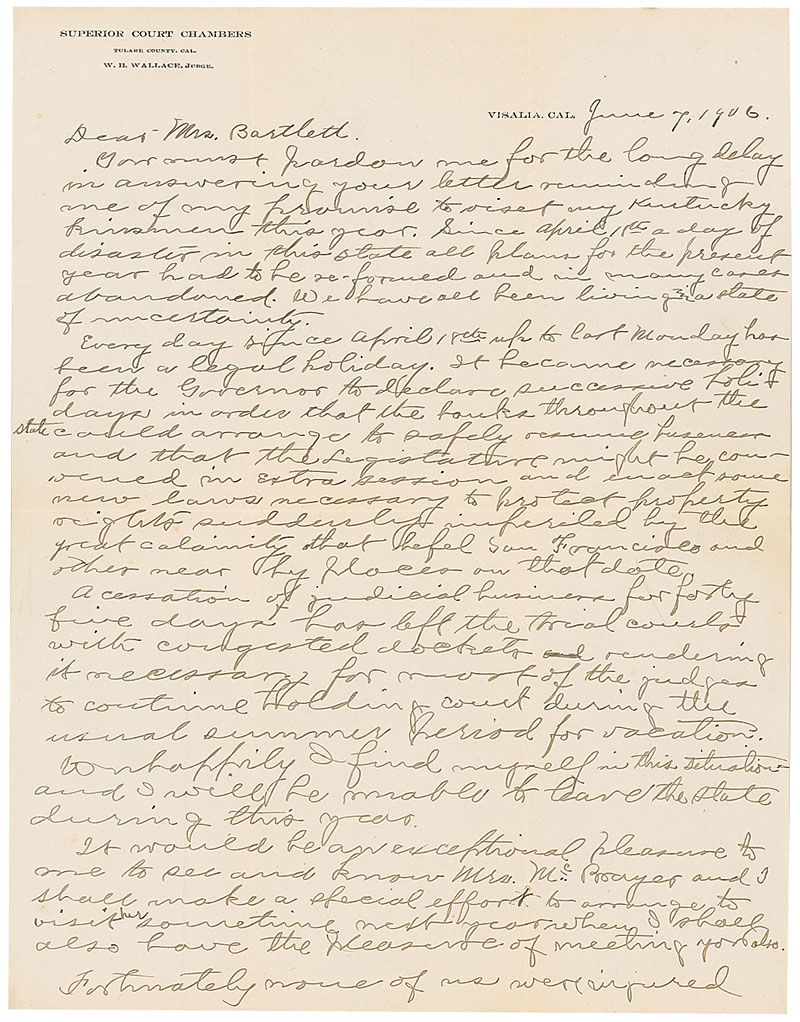 SUPERIOR COURT CHAMBERS
TULARE COUNTY, CAL.
W. B. WALLACE, JUDGE.
VISALIA, CAL. June 7, 1906.
Dear Mrs. Bartlett.
You must pardon me for the long delay
in answering your letter reminding
me of my promise to visit my Kentucky
kinsmen this year. Since April 18th a day of
disaster in this state all plans for the present
year had to be re-formed and in many cases
abandoned. We have all been living in a state
of uncertainty.
Every day since April 18th up to last Monday has
been a legal holiday. It became necessary
for the Governor to declare successive holi-
days in order that the banks throughout the
state could arrange to safely resume business
and that the Legislature might be con-
vened in extra session and enact some
new laws necessary to protect property
rights suddenly imperiled by the
great calamity that befel San Francisco and
other near by places on that date.
A cessation of judicial business for forty
five days has left the trial courts
with congested dockets and rendering
it necessary for most of the judges
to continue holding court during the
usual summer period for vacation.
Unhappily I find myself in this situation
and I will be unable to leave the state
during this year.
It would be an exceptional pleasure to
me to see and know Mrs. Mc. Brayer and I
shall make a special effort to arrange to
visit her sometime next year when I shall
also have the pleasure of meeting you also.
Fortunately none of us were injured